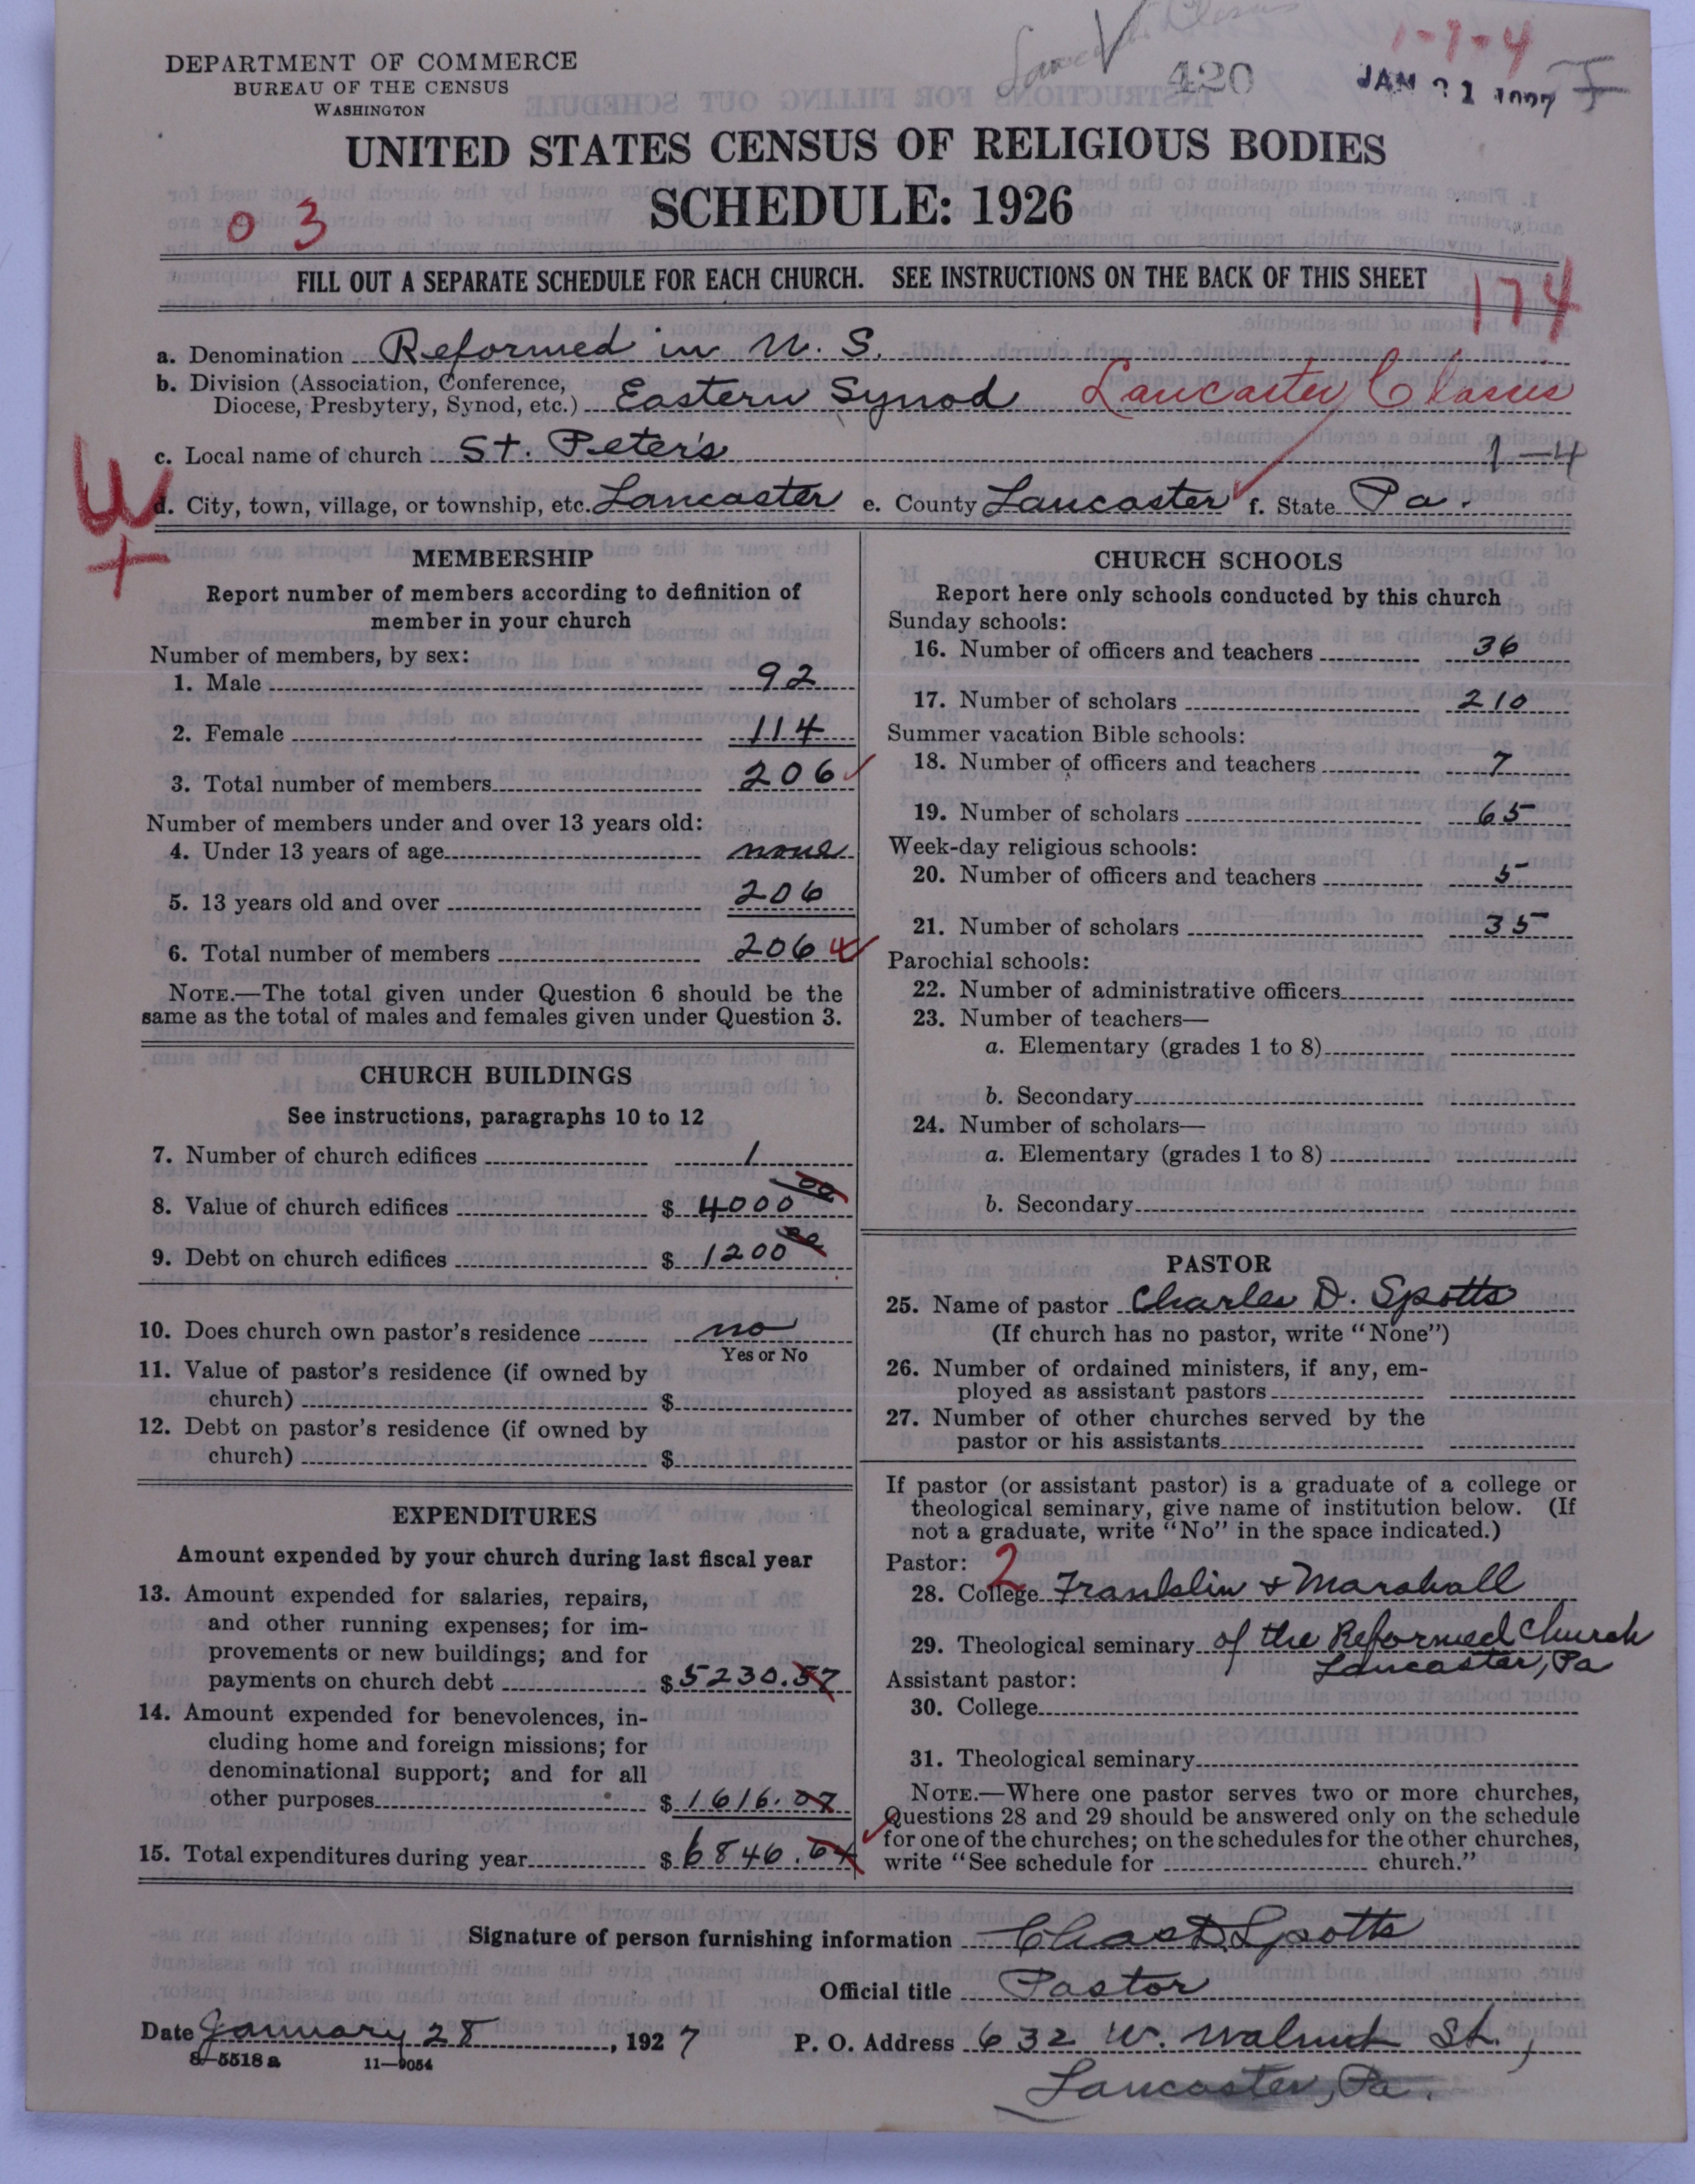 DEPARTMENT OF COMMERCE
BUREAU OF THE CENSUS
WASHINGTON
420
1-7-4
JAN 31 1927
UNITED STATES CENSUS OF RELIGIOUS BODIES
SCHEDULE: 1926
03
FILL OUT A SEPARATE SCHEDULE FOR EACH CHURCH. SEE INSTRUCTIONS ON THE BACK OF THIS SHEET
174
a. Denomination Reformed in U. S.
b. Division (Association, Conference, Diocese, Presbytery, Synod, etc.) Eastern Synod Lancaster Classis
c. Local name of church St. Peter's 1-4
d. City, town, village, or township, etc. Lancaster e. County Lancaster f. State Pa.
MEMBERSHIP
Report number of members according to definition of
member in your church
Number of members, by sex:
1. Male 92
2. Female 114
3. Total number of members 206
Number of members under and over 13 years old:
4. Under 13 years of age none
5. 13 years old and over 206
6. Total number of members 206 4
NOTE.—The total given under Question 6 should be the
same as the total of males and females given under Question 3.
CHURCH BUILDINGS
See instructions, paragraphs 10 to 12
7. Number of church edifices 1
8. Value of church edifices $ 4000 00
9. Debt on church edifices $ 1200 00
10. Does church own pastor's residence no
Yes or No
11. Value of pastor's residence (if owned by
church) $
12. Debt on pastor's residence (if owned by
church) $
EXPENDITURES
Amount expended by your church during last fiscal year
13. Amount expended for salaries, repairs,
and other running expenses; for im-
provements or new buildings; and for
payments on church debt $ 5230.57
14. Amount expended for benevolences, in-
cluding home and foreign missions; for
denominational support; and for all
other purposes $ 1616.07
15. Total expenditures during year $ 6846.64
CHURCH SCHOOLS
Report here only schools conducted by this church
Sunday schools:
16. Number of officers and teachers 36
17. Number of scholars 210
Summer vacation Bible schools:
18. Number of officers and teachers 7
19. Number of scholars 65
Week-day religious schools:
20. Number of officers and teachers 5
21. Number of scholars 35
Parochial schools:
22. Number of administrative officers
23. Number of teachers—
a. Elementary (grades 1 to 8)
b. Secondary
24. Number of scholars—
a. Elementary (grades 1 to 8)
b. Secondary
PASTOR
25. Name of pastor Charles D. Spotts
(If church has no pastor, write "None")
26. Number of ordained ministers, if any, em-
ployed as assistant pastors
27. Number of other churches served by the
pastor or his assistants
If pastor (or assistant pastor) is a graduate of a college or
theological seminary, give name of institution below. (If
not a graduate, write "No" in the space indicated.)
Pastor: 2
28. College Franklin + Marshall
29. Theological seminary of the Reformed Church
Lancaster, Pa
Assistant pastor:
30. College
31. Theological seminary
NOTE.—Where one pastor serves two or more churches,
Questions 28 and 29 should be answered only on the schedule
for one of the churches; on the schedules for the other churches,
write "See schedule for church."
Signature of person furnishing information Chas D. Spotts
Official title Pastor
Date January 28, 1927 P. O. Address 632 W. Walnut St.,
8-5518 a 11-9054
Lancaster, Pa.